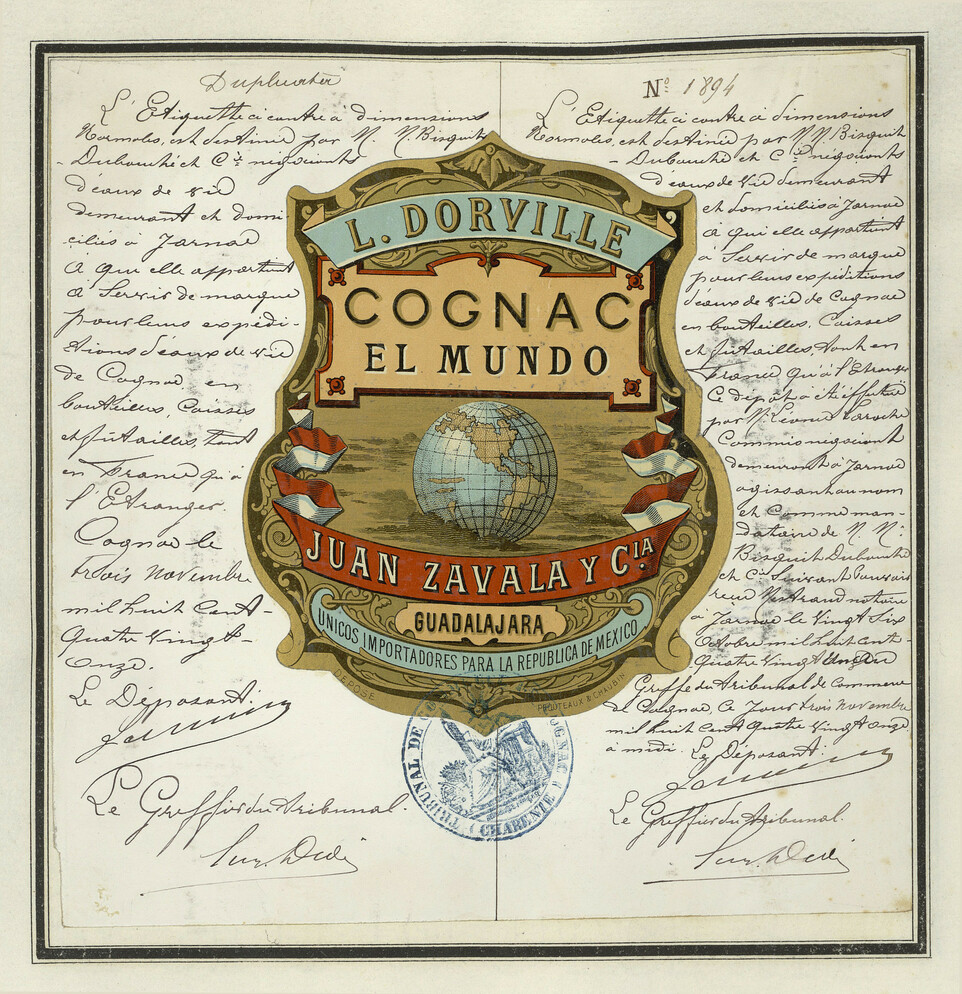 Duplicata
L'Etiquette ci contre à dimensions
Normales, est destinée par M. M Bisquit
Dubouché et Cie négociants
d'eaux de vie
demeurant et domi-
ciliés à Jarnac
à qui elle appartient
à Servir de marque
pour leurs expédi-
tions d'eaux de vie
de Cognac en
bouteilles, Caisses
et futailles, tant
en France qu'à
l'Etranger.
Cognac le
trois Novembre
mil huit Cent-
Quatre Vingt-
Onze.
Le Déposant.
Le Greffier du tribunal
L. DORVILLE
COGNAC
EL MUNDO
JUAN ZAVALA Y CIA.
GUADALAJARA
UNICOS IMPORTADORES PARA LA REPUBLICA DE MEXICO
DÉPOSÉ
PROUTEAUX & CHAUBIN
TRIBUNAL DE COGNAC (CHARENTE)
No 1894
L'Etiquette ci contre à dimensions
Normales, est destinée par M M Bisquit
Dubouché et Cie négociants
d'eaux de vie demeurant
et domiciliés à Jarnac
à qui elle appartient
à Servir de marque
pour leurs expéditions
d'eaux de vie de Cognac
en bouteilles, Caisses
et futailles, tant en
France qu'à l'Etranger
Ce dépôt a été effectué
par Mr Léonce Laroche
Commis négociant
demeurant à Jarnac
agissant au nom
et Comme man-
dataire de M. M.
Bisquit Dubouché
et Cie Suivant Pouvoir
reçu notaire
à Jarnac le Vingt Six
Octobre mil huit cent
Quatre Vingt Onze
Greffe du tribunal de Commerce
de Cognac, Ce Jour trois Novembre
mil huit Cent Quatre Vingt Onze
à midi. Le Déposant.
Le Greffier du tribunal.